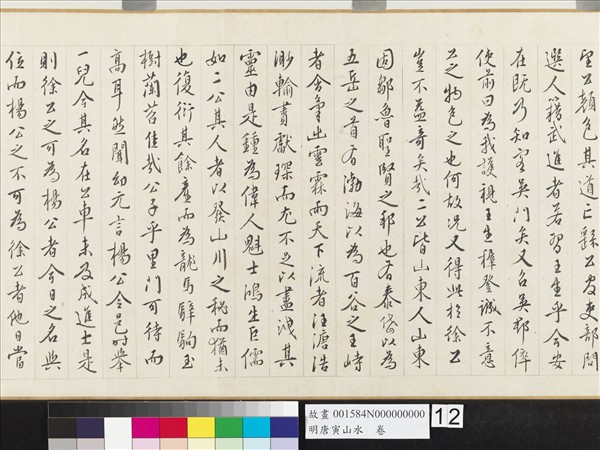 望公顏色其道亡繇公官吏部問
選人籍武進者若習王生乎今安
在既乃知客吳門矣又名吳郡倅
使前曰為我護視王生穉登誠不意
公之物色之也何故況又得此於徐公
豈不益奇矣哉二公皆山東人山東
固鄒魯聖賢之邦也有泰岱以為
五岳之首有渤海以為百谷之王峙
者含氣出雲霖雨天下流者汪溏浩
渺輸賮獻琛而尤不足以盡洩其
靈由是鍾為偉人魁士鴻生巨儒
如二公其人者以發山川之秘而猶未
也復衍其餘產而為龍馬騂駒玉
樹蘭苕佳哉公子乎里門可待而
高耳然聞幼元言楊公令邑時舉
一兒今其名在公車未及成進士是
則徐公之可為楊公者今日之名與
位而楊公之不可為徐公者他日當
故畫 001584N000000000
明唐寅山水 卷
12